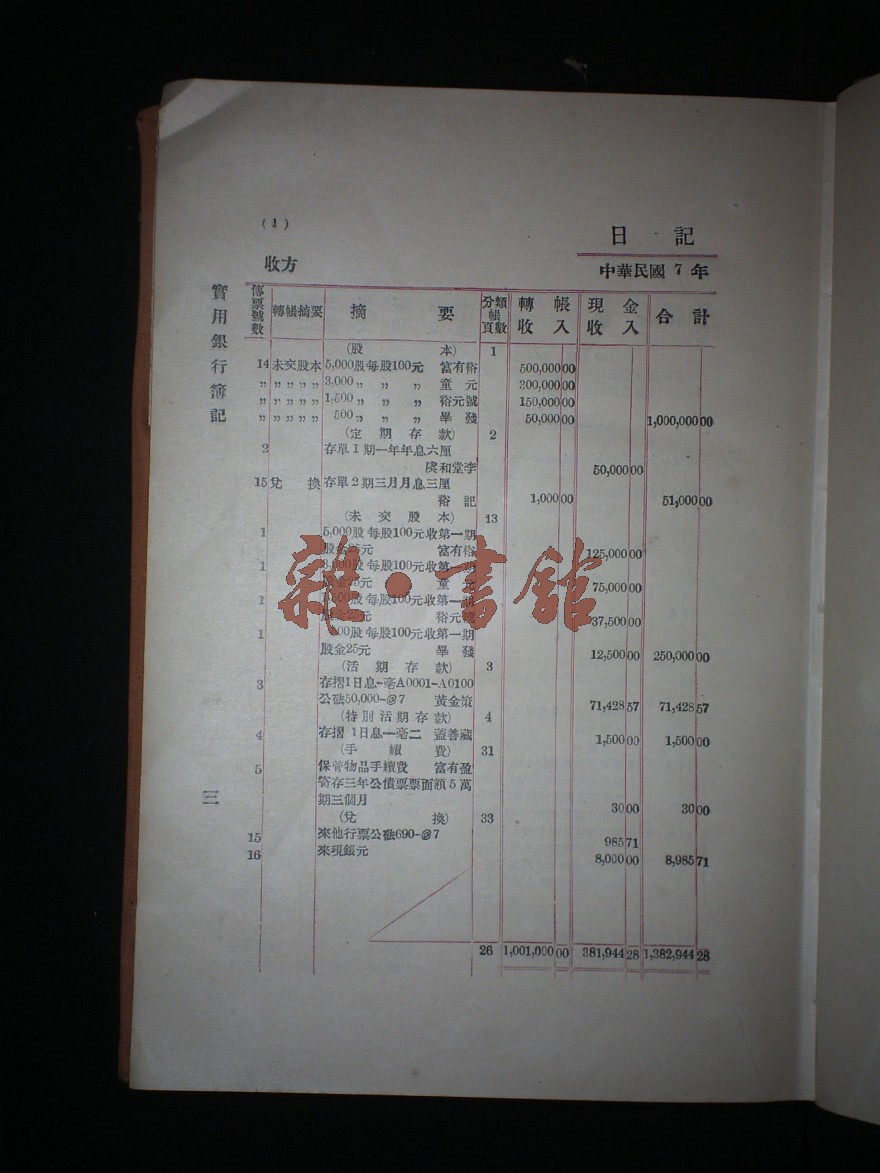 (1)
日記
收方
中華民國 7 年
實用銀行簿記
傳票號數 轉帳摘要 摘要 分類帳頁數 轉帳收入 現金收入 合計
(股本) 1
14 未交股本 5,000股每股100元 富有裕 500,000 00
〃 〃〃〃〃 3,000〃 〃 〃 童元 300,000 00
〃 〃〃〃〃 1,500〃 〃 〃 裕元號 150,000 00
〃 〃〃〃〃 500〃 〃 〃 畢發 50,000 00 1,000,000 00
(定期存款) 2
2 存單1期一年年息六厘
虞和堂李 50,000 00
15 兌換 存單2期三月月息三厘
裕記 1,000 00 51,000 00
(未交股本) 13
1 5,000股每股100元收第一期
股金25元 富有裕 125,000 00
1 3,000股每股100元收第一期
股金25元 童元 75,000 00
1 500股每股100元收第一期
股金25元 裕元號 37,500 00
1 500股每股100元收第一期
股金25元 畢發 12,500 00 250,000 00
(活期存款) 3
3 存摺1日息一毫A0001-A0100
公砝50,000-@7 黃金策 71,428 57 71,428 57
(特別活期存款) 4
4 存摺1日息一毫二 藍善藏 1,500 00 1,500 00
(手續費) 31
5 保管物品手續費 富有盈
寄存三年公債票票面額5萬
期三個月 30 00 30 00
(兌換) 33
15 來他行票公砝690-@7 985 71
16 來現銀元 8,000 00 8,985 71
26 1,001,000 00 381,944 28 1,382,944 28
三
雜·書館